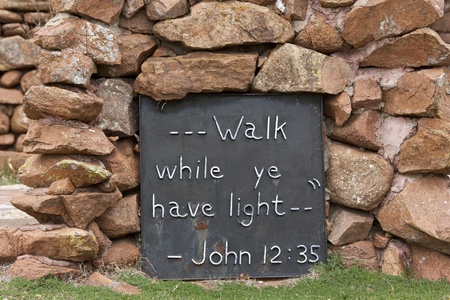 " --- Walk
while ye
have light-- "
- John 12:35